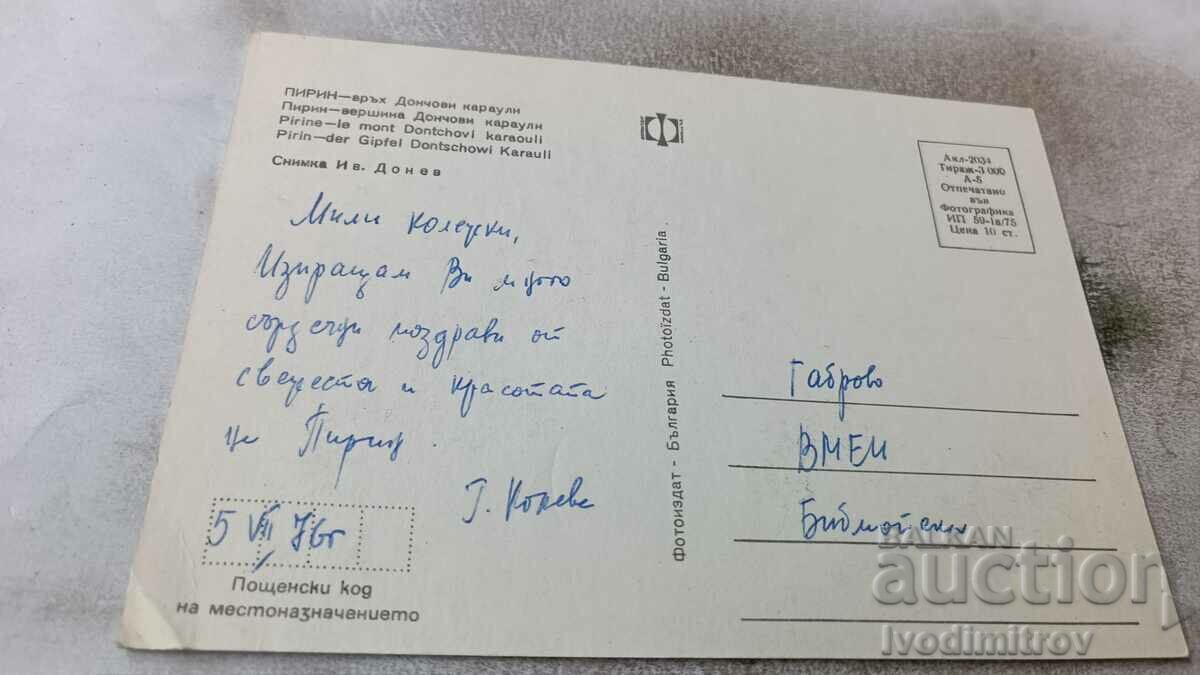 ПИРИН—връх Дончови караули
Пирин—вершина Дончови караули
Pirine—le mont Dontchovi karaouli
Pirin—der Gipfel Dontschowi Karauli
Снимка Ив. Донев
Мили колежки,
Изпращам Ви много
сърдечни поздрави от
свежестта и красотата
на Пирин.
Г. Колева
5 VII 76г
Пощенски код
на местоназначението
Фотоиздат - България Photoïzdat - Bulgaria
Акл-2034
Тираж-3 000
А-6
Отпечатано
във
Фотографика
ИП 59-1а/75
Цена 10 ст.
Габрово
ВМЕИ
Библиотека
BALKAN
auction
Ivodimitrov